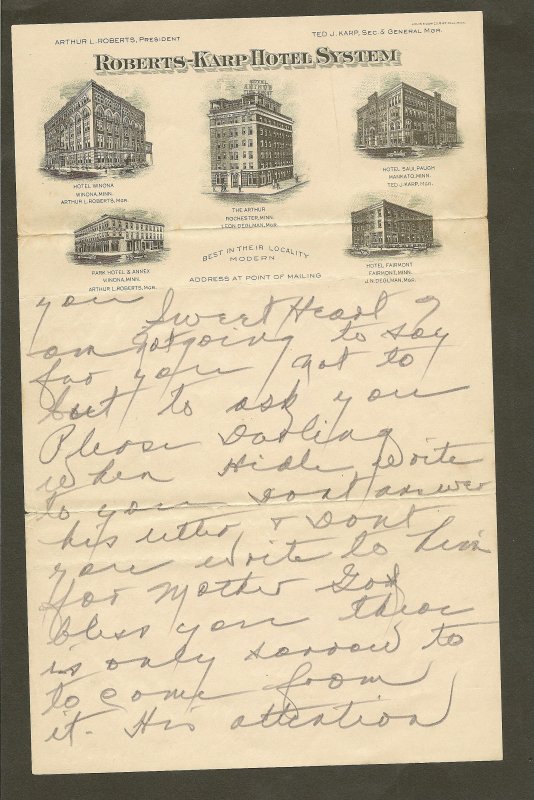 ARTHUR L. ROBERTS, PRESIDENT
TED J. KARP, SEC. & GENERAL MGR.
ROBERTS-KARP HOTEL SYSTEM
HOTEL WINONA
WINONA, MINN.
ARTHUR L. ROBERTS, MGR.
HOTEL ARTHUR
THE ARTHUR
ROCHESTER, MINN.
LEON DEGLMAN, MGR.
HOTEL SAULPAUGH
MANKATO, MINN.
TED J. KARP, MGR.
PARK HOTEL & ANNEX
WINONA, MINN.
ARTHUR L. ROBERTS, MGR.
BEST IN THEIR LOCALITY
MODERN
ADDRESS AT POINT OF MAILING
HOTEL FAIRMONT
FAIRMONT, MINN.
J.N. DEGLMAN, MGR.
you Sweet Heart I
am not going to say
for you not to
but to ask you
Please Darling
when write
to you Dont answer
his letter & Dont
you write to him
for Mother God
bless you there
is only sorrow to
to come from
it. His attention